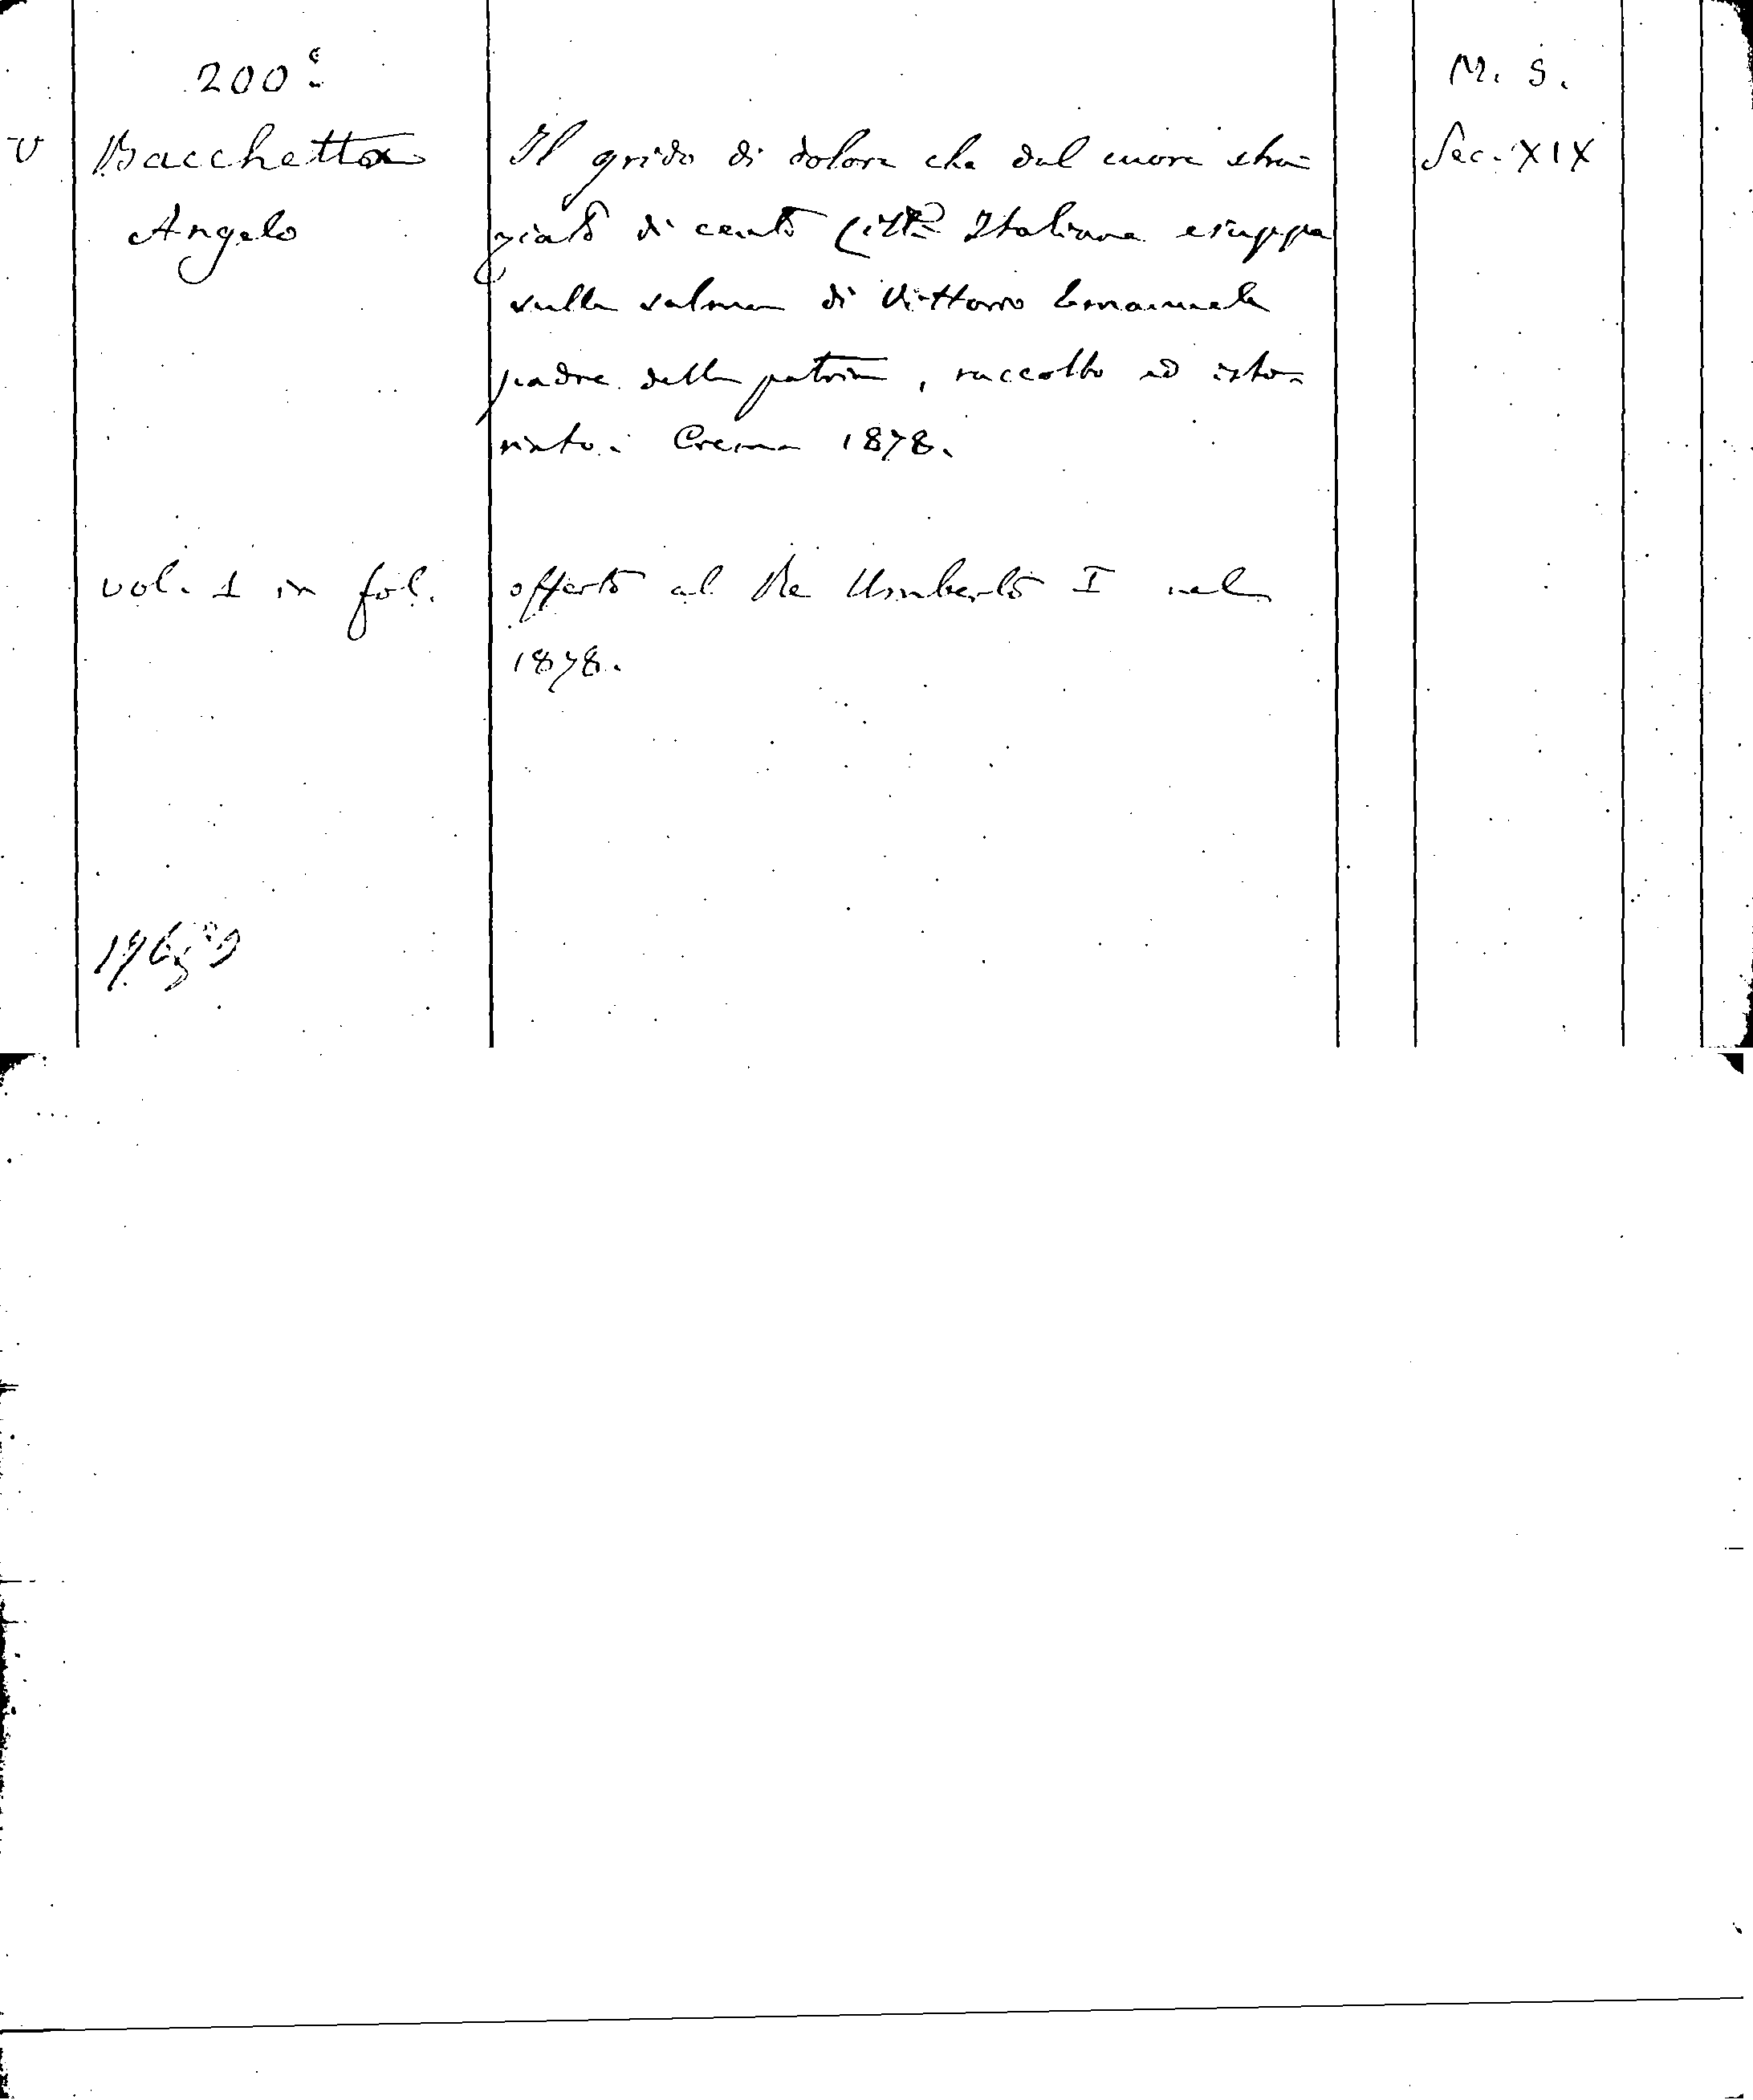 200.c
M. S.
V Bacchetta Il grido di dolore che dal cuore stra- Sec. XIX
Angelo ziato di cento Città Italiane eruppe
sulla salma di Vittorio Emanuele
padre della patria, raccolto ed isto-
riato. Crema 1878.
vol. 1 in fol. offerto al Re Umberto I nel
1878.